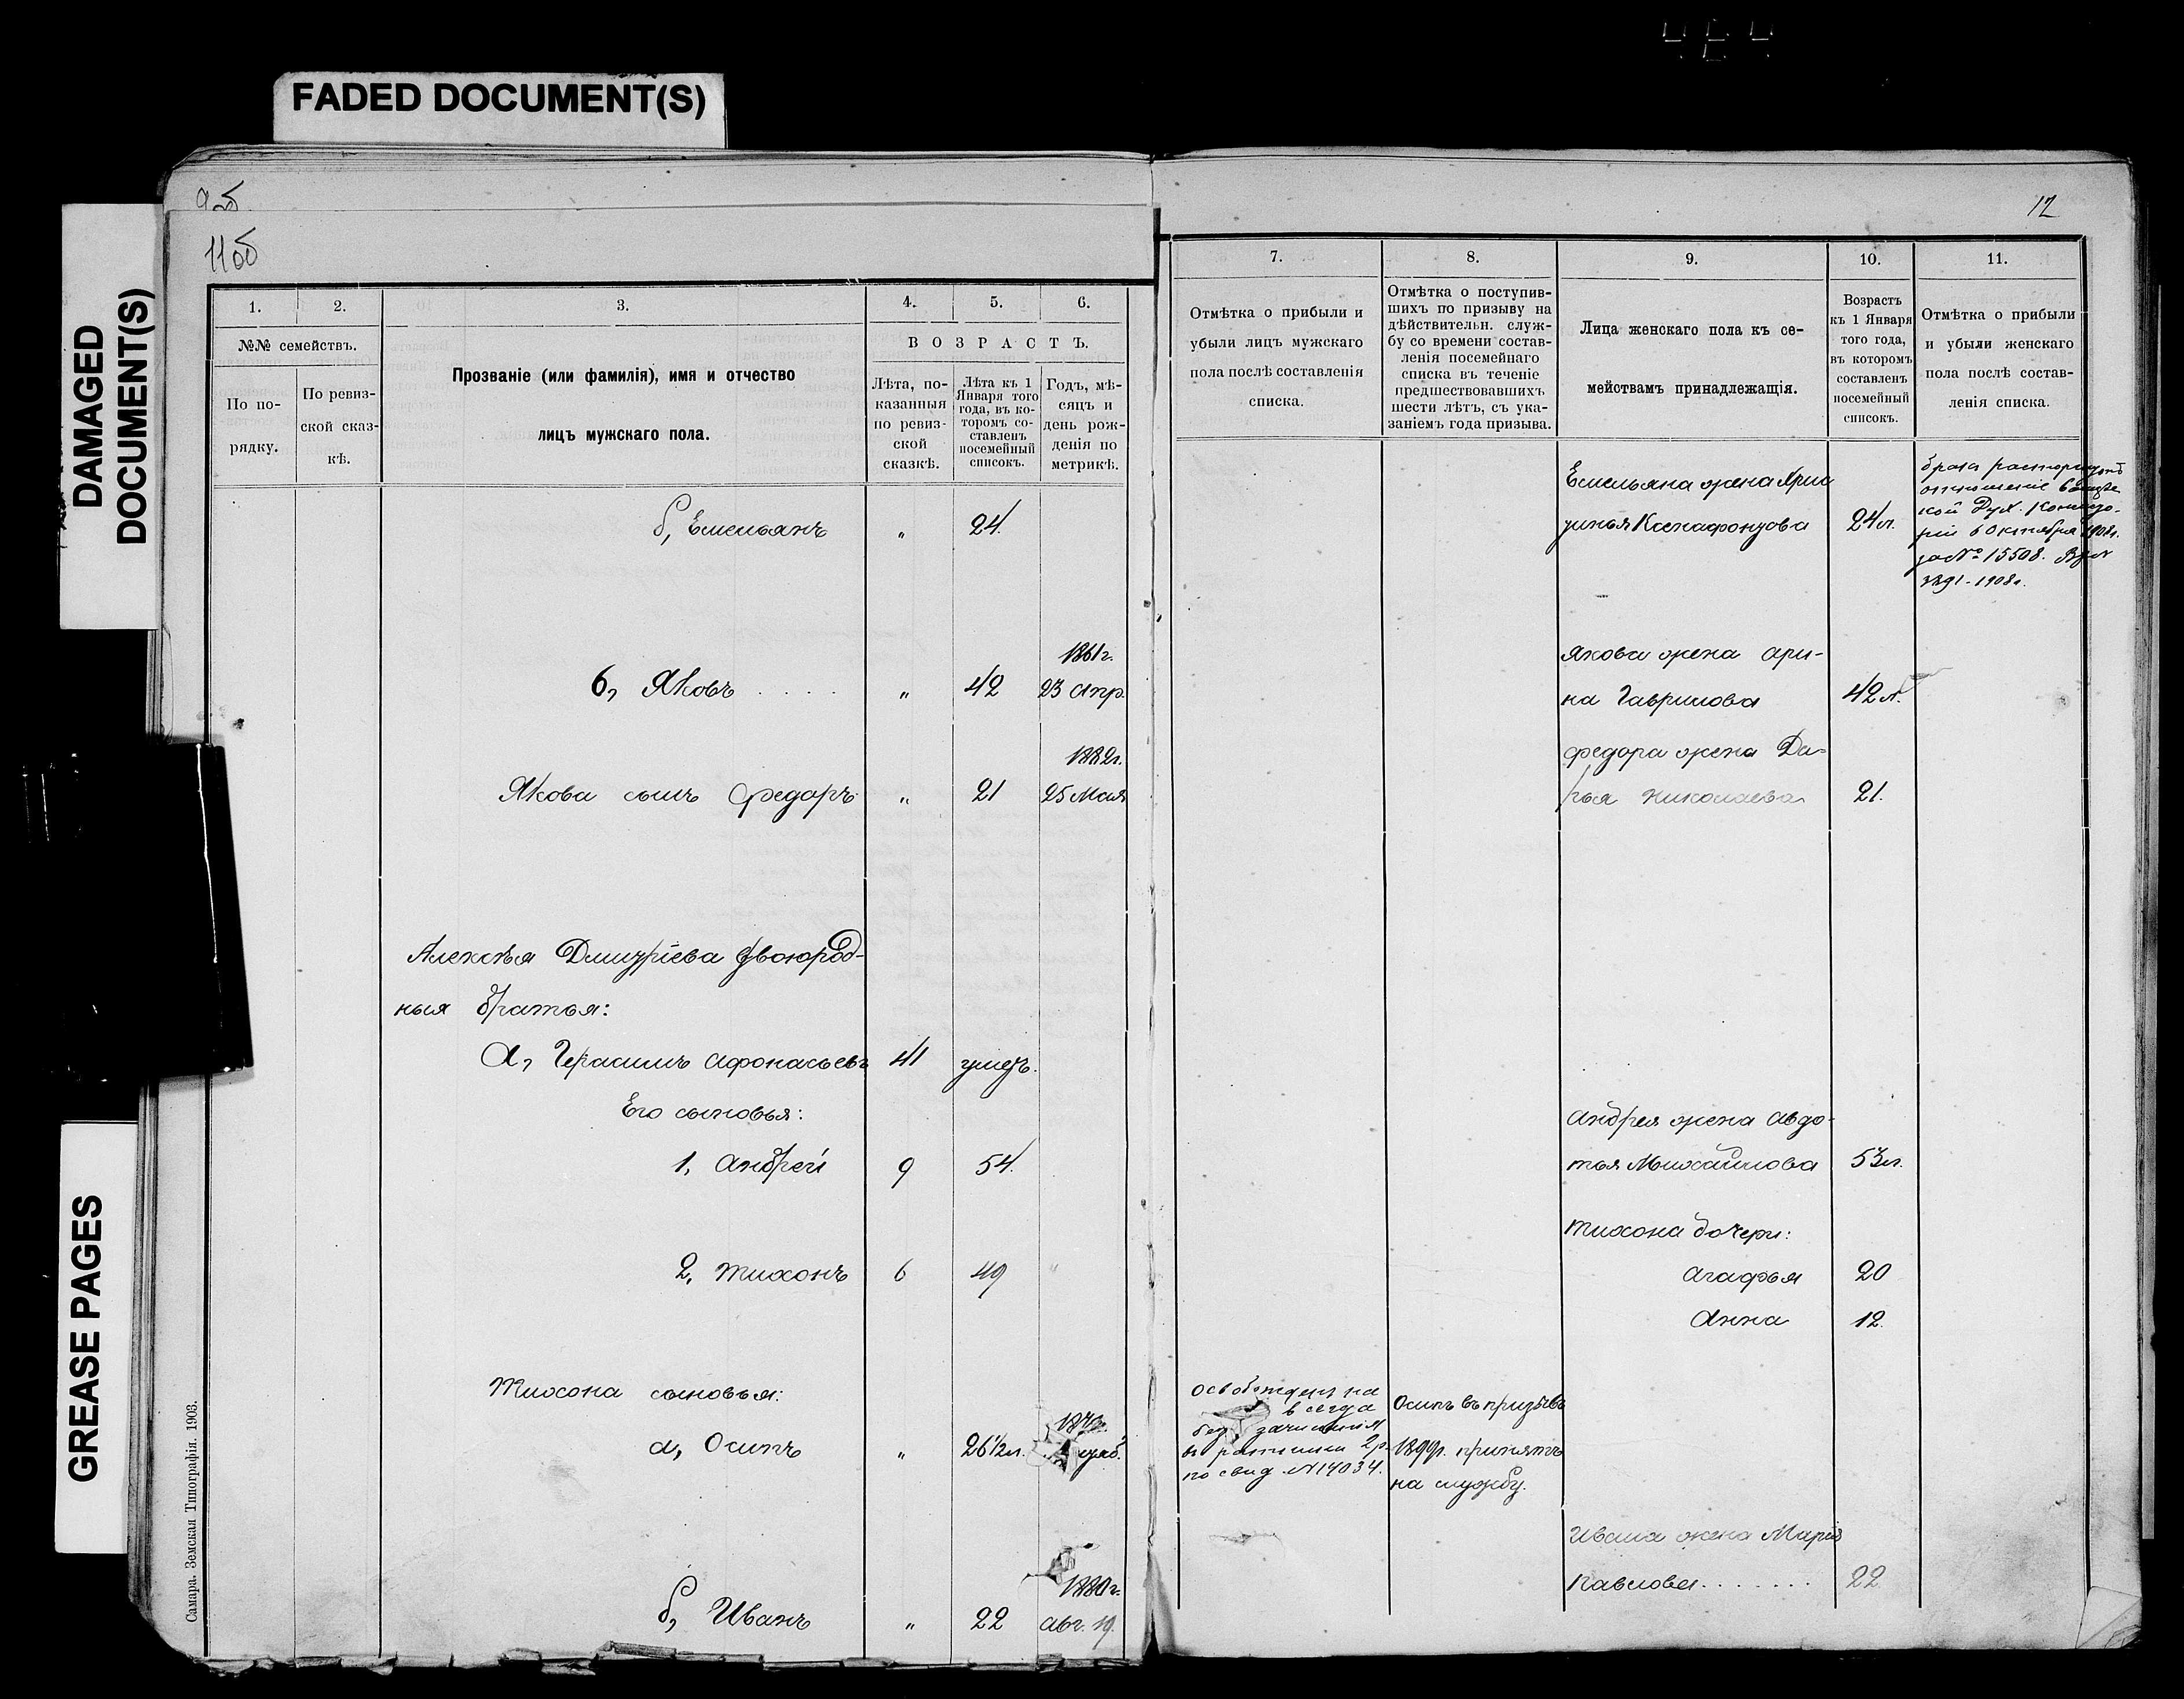 FADED DOCUMENT(S)
DAMAGED
DOCUMENT(S)
GREASE PAGES
9об
11об
1.
2.
3.
4.
5.
6.
№№ семействъ.
По по-
рядку.
По ревиз-
ской сказ-
кѣ.
Прозваніе (или фамилія), имя и отчество
лицъ мужскаго пола.
ВОЗРАСТЪ.
Лѣта, по-
казанныя
по ревиз-
ской
сказкѣ.
Лѣта къ 1
Января того
года, въ ко-
торомъ со-
ставленъ
посемейный
списокъ.
Годъ, мѣ-
сяцъ и
день рож-
денія по
метрикѣ.
б, Емельянъ " 24.
1861г.
6, Яковъ . . . . " 42 23 Апр.
1882г.
Якова сынъ Федоръ " 21 25 Мая
Алексѣя Дмитріева двоюрод-
ныя братья:
а, Герасимъ Афонасьевъ 41 умеръ.
Его сыновья:
1, Андрей 9 54.
2, Тихонъ 6 49 "
Тихона сыновья:
а, Осипъ " 26½л.
1880г.
б, Иванъ " 22 авг. 19.
Самара. Земская Типографія. 1903.
12
7.
8.
9.
10.
11.
Отмѣтка о прибыли и
убыли лицъ мужскаго
пола послѣ составленія
списка.
Отмѣтка о поступив-
шихъ по призыву на
дѣйствительн. служ-
бу со времени состав-
ленія посемейнаго
списка въ теченіе
предшествовавшихъ
шести лѣтъ, съ ука-
заніемъ года призыва.
Лица женскаго пола къ се-
мействамъ принадлежащія.
Возрастъ
къ 1 Января
того года,
въ которомъ
составленъ
посемейный
списокъ.
Отмѣтка о прибыли
и убыли женскаго
пола послѣ состав-
ленія списка.
Емельяна жена
Ксенафонтова 24л.
бракъ
отношеніе
кой Дух. Консисто-
ріи 6 Октября 1908г.
за № 15508.
3291-1908г.
Якова жена Ари-
на Гаврилова 42л.
Федора жена Да-
рья Николаева 21.
Андрея жена Авдо-
тья Михайлова 53л.
Тихона дочери:
Агафья 20
Анна 12.
Освобожденъ на
всегда
безъ зачисленія
въ ратники 2р.
по свид. №14034.
Осипъ въ призывъ
1899г. принятъ
на службу.
Ивана жена Марія
Павлова . . . . . . . 22